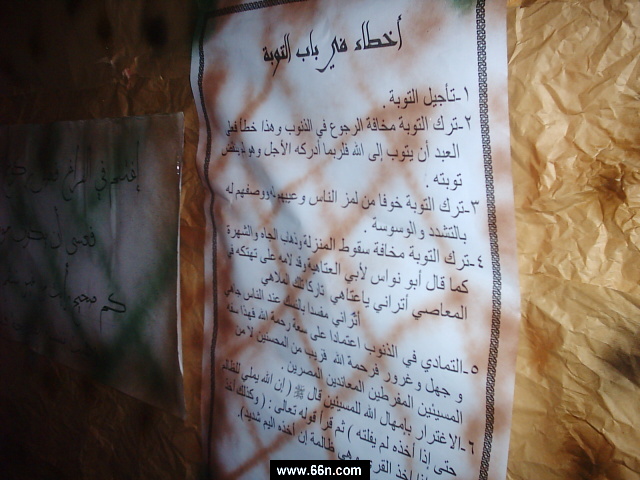 أخطاء في باب التوبة
١-تأجيل التوبة .
٢-ترك التوبة مخافة الرجوع في الذنوب وهذا خطأ فعلى
العبد أن يتوب إلى الله فلربما أدركه الأجل وهو لم ينقض
توبته .
٣-ترك التوبة خوفا من لمز الناس وعيبهم ووصفهم له
بالتشدد والوسوسة .
٤-ترك التوبة مخافة سقوط المنزلة وذهاب الجاه والشهرة
كما قال أبو نواس لأبي العتاهية وقد لامه على تهتكه في
المعاصي أتراني ياعتاهي تاركا تلك الملاهي
أتراني مفسدا بالنسك عند الناس جاهي
٥-التمادي في الذنوب اعتمادا على سعة رحمة الله فهذا سفه
و جهل و غرور فرحمة الله قريب من المحسنين لا من
المسيئين المفرطين المعاندين المصرين .
٦-الاغترار بإمهال الله للمسيئين قال ﷺ ( إن الله يملي للظالم
حتى إذا أخذه لم يفلته ) ثم قرأ قوله تعالى : ( وكذلك أخذ
إذا أخذ القرى وهي ظالمة إن أخذه اليم شديد).
www.66n.com